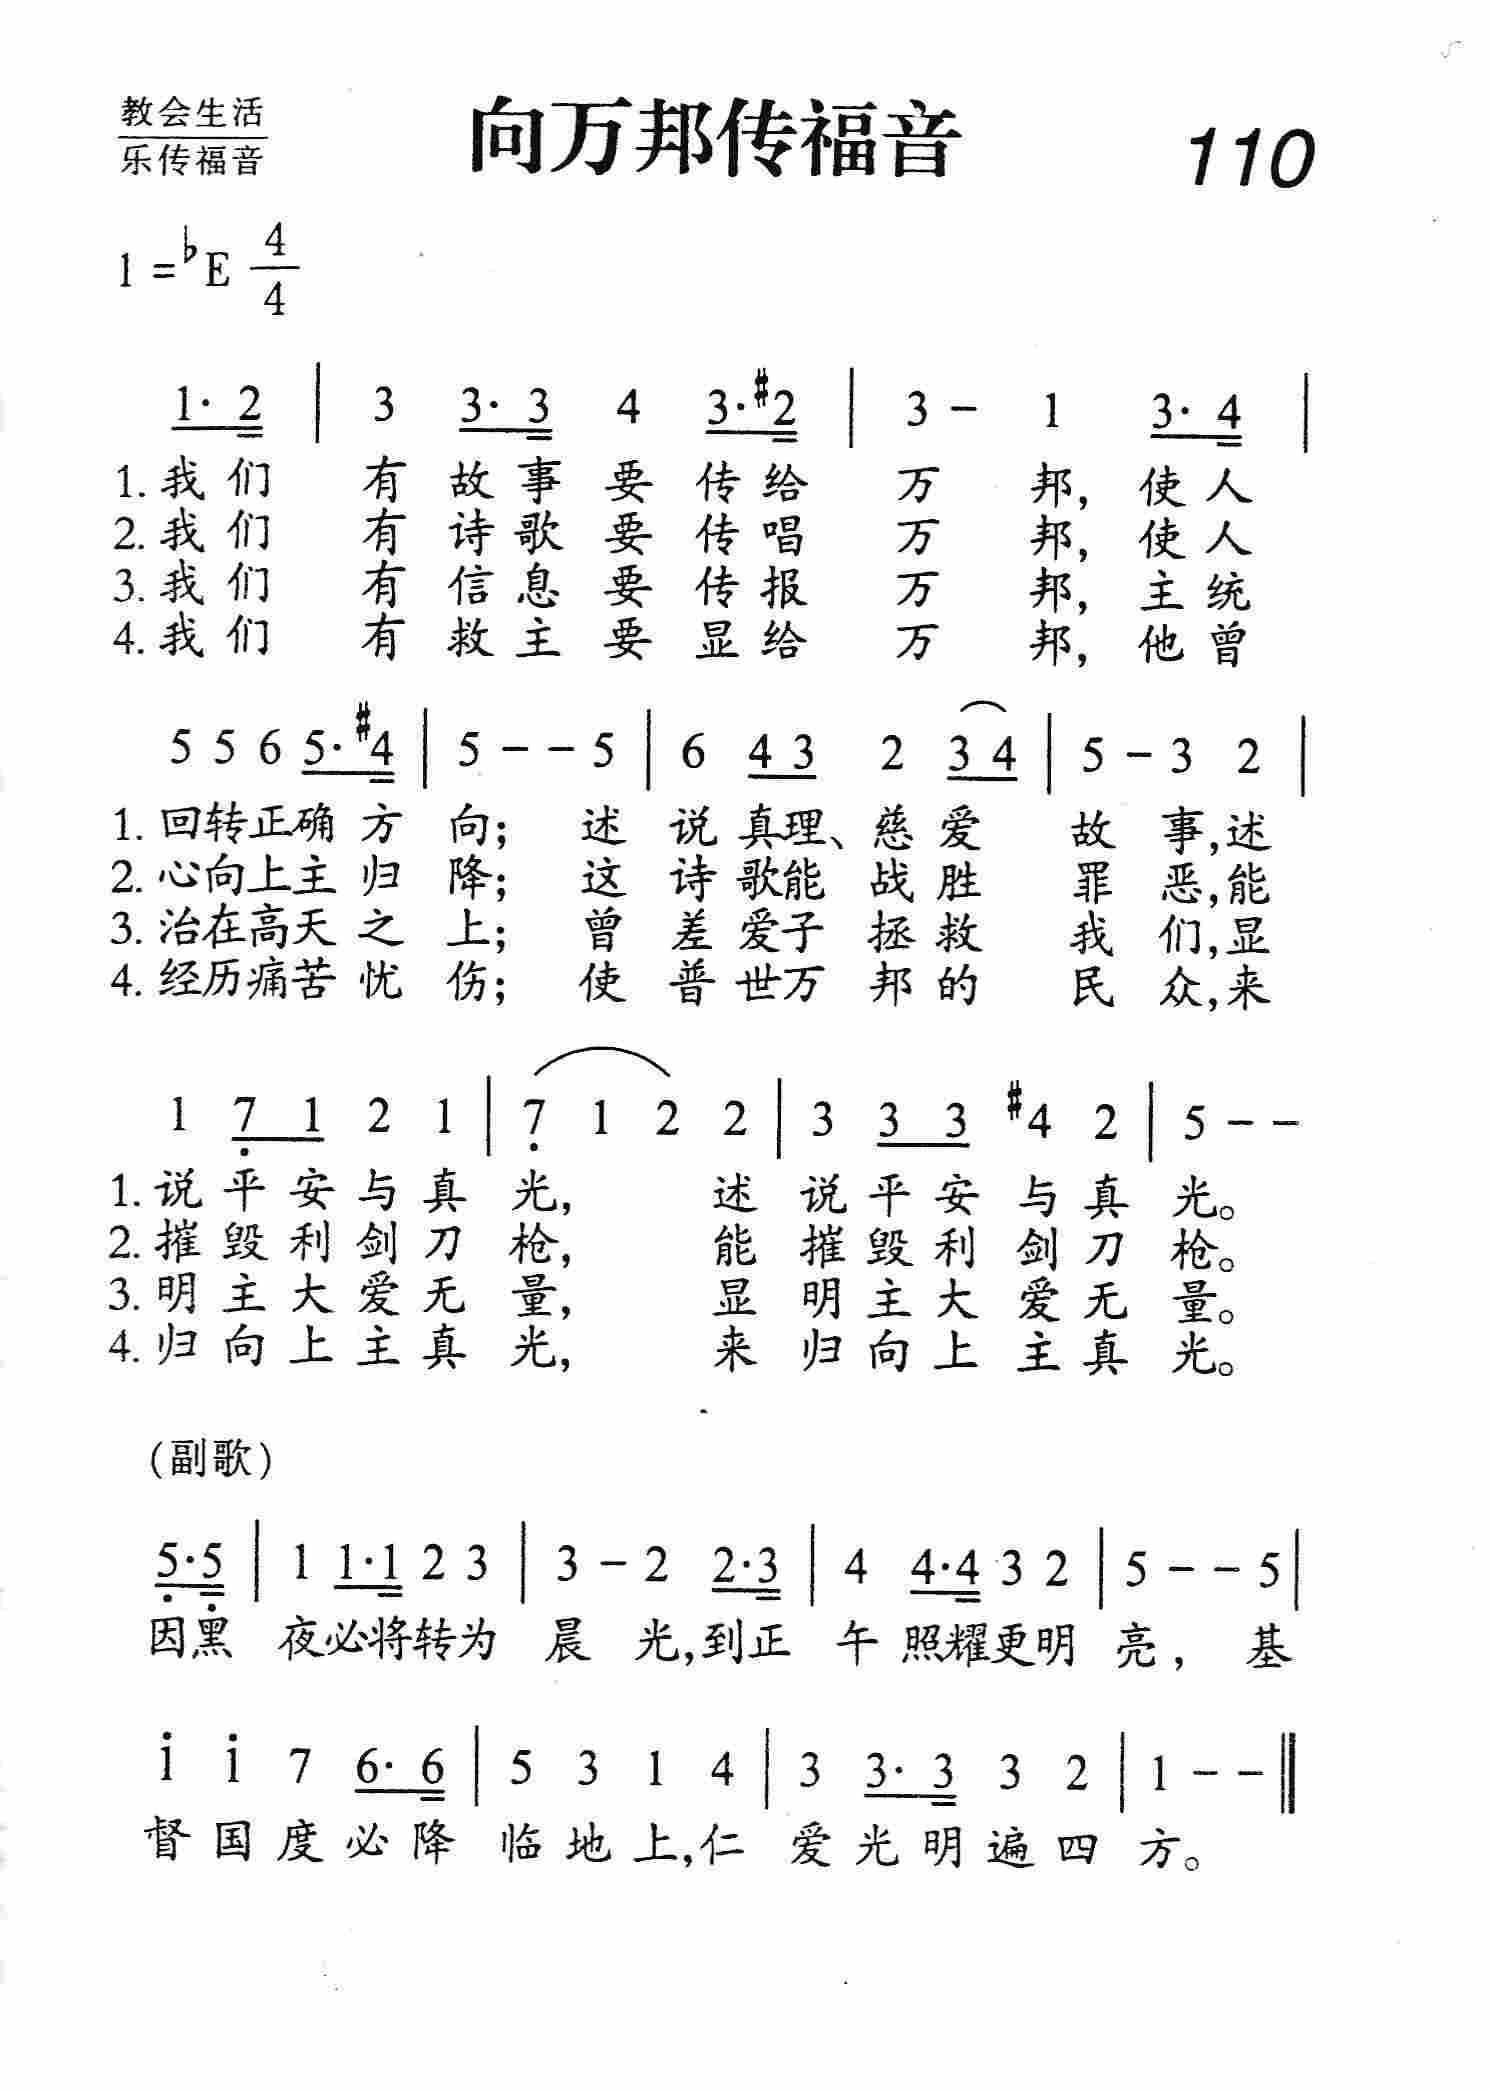 教会生活
乐传福音
向万邦传福音
110
1=♭E 4/4
1· 2 | 3 3· 3 4 3· #2 | 3 - 1 3· 4 |
1. 我们 有故事要传给 万 邦，使人
2. 我们 有诗歌要传唱 万 邦，使人
3. 我们 有信息要传报 万 邦，主统
4. 我们 有救主要显给 万 邦，他曾
5 5 6 5· #4 | 5 - - 5 | 6 4 3 2 3 4 | 5 - 3 2 |
1. 回转正确方 向；述 说真理、慈爱 故 事，述
2. 心向上主归 降；这 诗歌能战胜 罪 恶，能
3. 治在高天之 上；曾 差爱子拯救 我 们，显
4. 经历痛苦忧 伤；使 普世万邦的 民 众，来
1 7̣ 1 2 1 | 7̣ 1 2 2 | 3 3 3 #4 2 | 5 - -
1. 说平安与真 光，述 说平安与真 光。
2. 摧毁利剑刀 枪，能 摧毁利剑刀 枪。
3. 明主大爱无 量，显 明主大爱无 量。
4. 归向上主真 光，来 归向上主真 光。
（副歌）
5̣· 5̣ | 1 1· 1 2 3 | 3 - 2 2· 3 | 4 4· 4 3 2 | 5 - - 5 |
因黑 夜必将转为 晨 光，到正 午 照耀更明 亮， 基
1̇ 1̇ 7 6· 6 | 5 3 1 4 | 3 3· 3 3 2 | 1 - - ‖
督国度必降 临地上，仁 爱光明遍四 方。